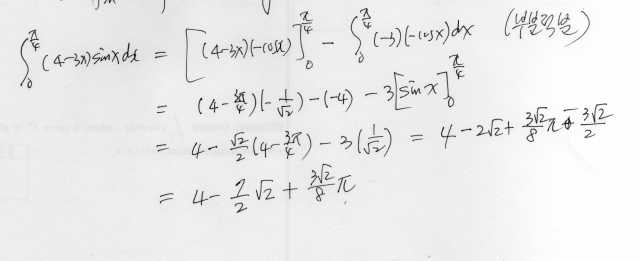 ∫₀^{π/4} (4-3x)sinx dx = [(4-3x)(-cosx)]₀^{π/4} - ∫₀^{π/4} (-3)(-cosx)dx (부분적분)
= (4-3π/4)(-1/√2)-(-4) - 3[sinx]₀^{π/4}
= 4 - √2/2(4-3π/4) - 3(1/√2) = 4-2√2+ 3√2/8 π - 3√2/2
= 4 - 7/2 √2 + 3√2/8 π